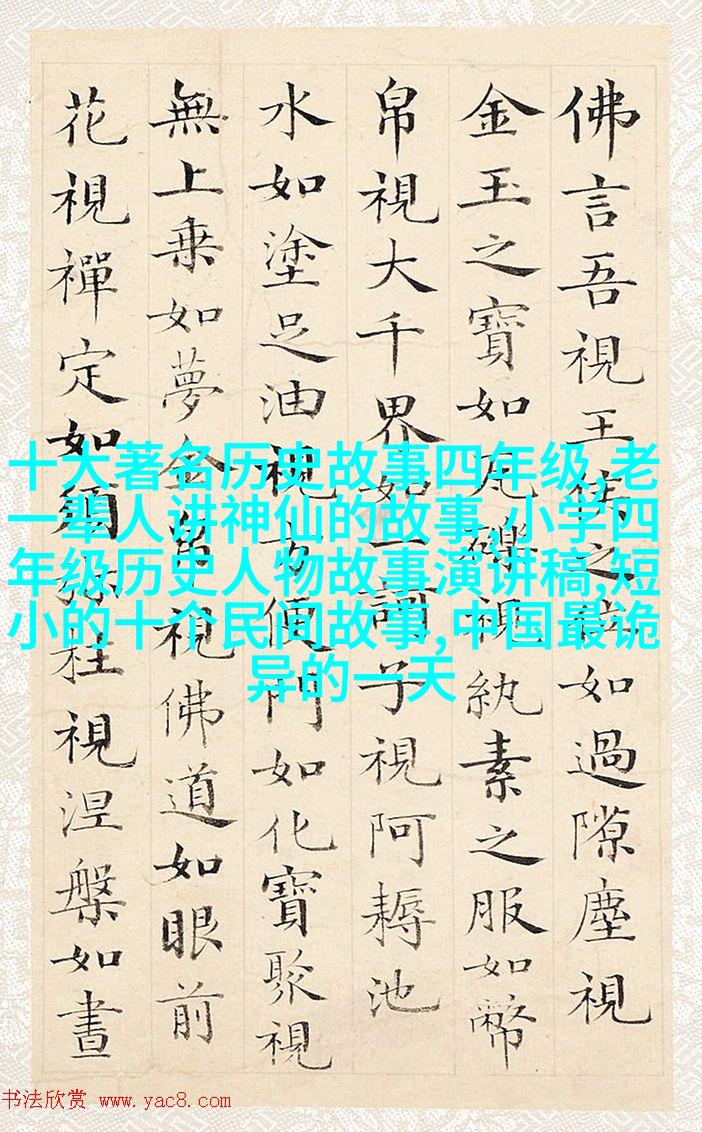 佛言吾視王之如過隙塵視
金玉之寶如瓦礫視紈素之服如幣
帛視大千界如一訶子視阿耨池
水如塗足油視方便門如化寶聚視
無上乗如夢金帛視佛道如眼前
花視禪定如須弥柱視涅槃如晝
十大著名历史故事四年级,老
一辈人讲神仙的故事,小学四
年级历史人物故事演讲稿,短
小的十个民间故事,中国最诡
异的一天
书法欣赏 www.yac8.com